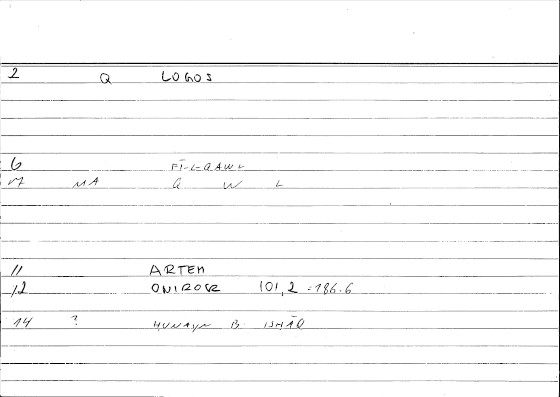 2 Q LOGOS
6 FĪ-L-QAWL
17 MA Q W L
11 ARTEM
12 ONIROCR 101,2 = 186.6
14 ? ḤUNAYN B. ISḤĀQ